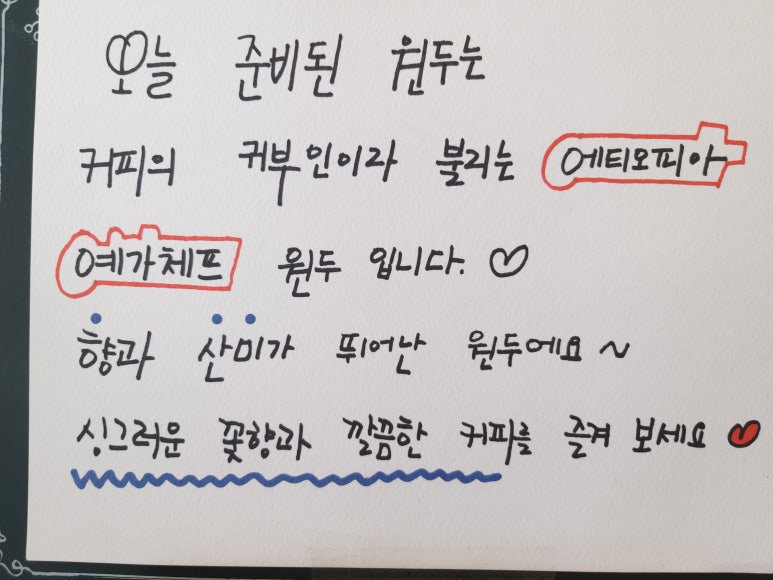 오늘 준비된 원두는
커피의 귀부인이라 불리는 에티오피아
예가체프 원두 입니다. ♡
향과 산미가 뛰어난 원두에요~
싱그러운 꽃향과 깔끔한 커피를 즐겨 보세요 ♥